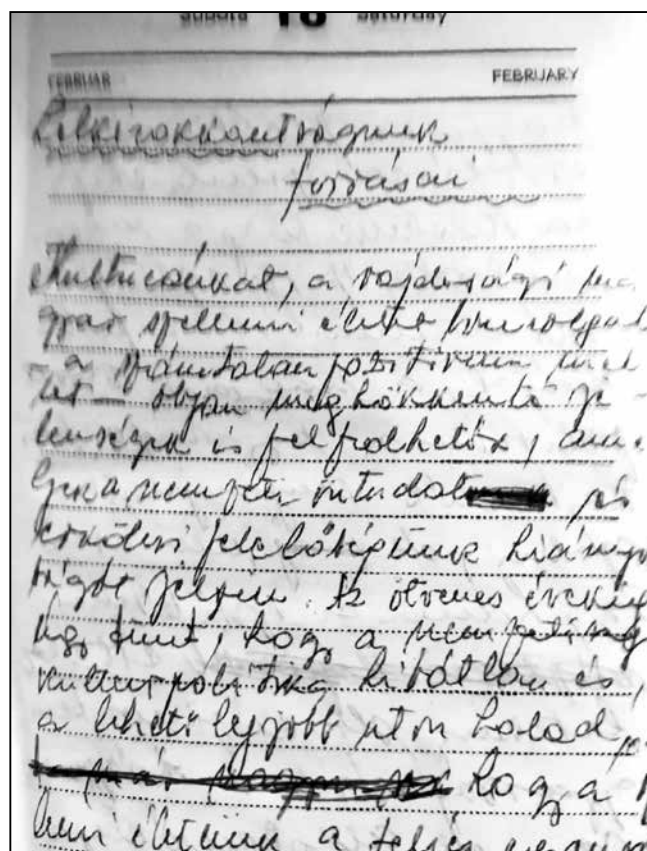 subota 18 saturday
FEBRUAR FEBRUARY
Lelki rokkantságunk
forrásai
Kultúránkat, a vajdasági ma
gyar szellemi életet
- a számtalan pozitívum mel
let - olyan meghökkentő je-
lenségek is felfedhetők, ame
lyek a nemzeti öntudat és
erkölcsi felelősségünk hiányos
ságát jelzik. Az ötvenes évekig
úgy tűnt, hogy a nemzetiségi
kultúrpolitika hibátlan és,
a lehető legjobb úton halad,
hogy a
életünk a